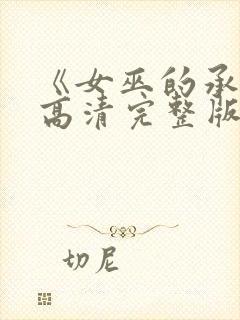 《女巫的承
高清完整版
切尼